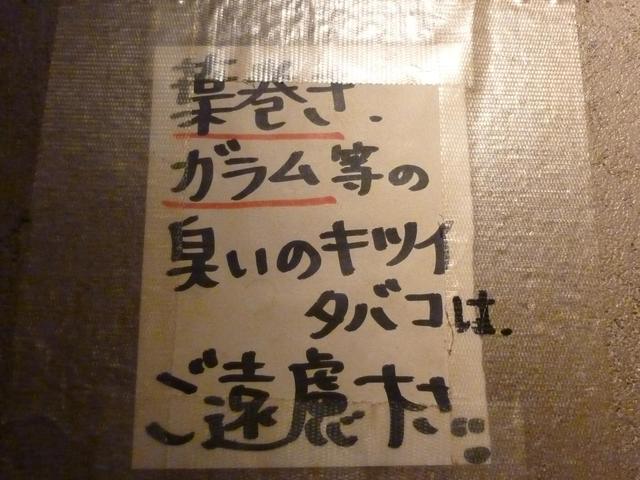 葉巻き.
ガラム等の
臭いのキツイ
タバコは.
ご遠慮下さい